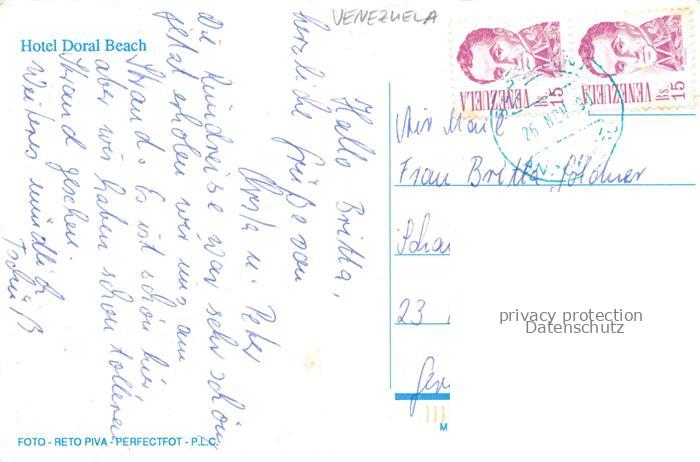 VENEZUELA
Hotel Doral Beach
Hallo Britta,
herzliche Grüße von
Christa u. Peter
Die Rundreise war sehr schön
jetzt erholen wir uns am
Strand. Es ist schön hier
aber wir haben schon tolleren
Strand gesehen.
Weiteres mündlich
Tschüß
VENEZUELA Bs. 15
VENEZUELA Bs. 15
26 NOV
Mail
Frau Britta
23
FOTO - RETO PIVA - PERFECTFOT - P.L.C.
M
privacy protection
Datenschutz